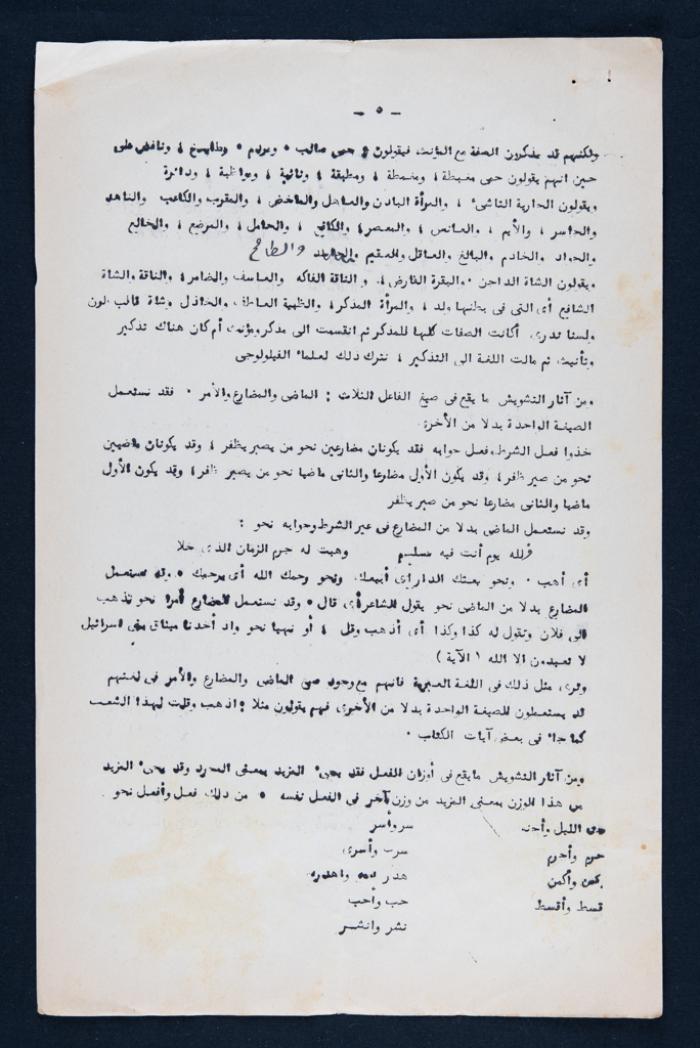 - ٥ -
ولكنهم قد يذكرون الصفة مع المؤنث فيقولون حمى صالب ، ومردم ، ونافض على
حين انهم يقولون حمى مغبطة ، ومغمطة ، ومطبقة ، ونائبة ، ومواظبة ، ودائرة
ويقولون الجارية الناشئ ، والمرأة البادن والعاهل والماخض ، والمقرب والكاعب والناهد
والحاسر ، والأيم ، والعانس ، والمعصر ، والحامل ، والمرضع ، والخالع
والجواد والخادم والبالغ والعاقل والعقيم والطامح
ويقولون الشاة الداجن . والبقرة الفارض ، و الناقة الفاكه والعاسف والضامر ، والناقة والشاة
الشافع أى التى فى بطنها ولد ، والمرأة المذكر ، والظبية العاطف والخاذل وشاة قالب لون
ولسنا ندرى أكانت الصفات كلها للمذكر ثم انقسمت الى مذكر ومؤنث أم كان هناك تذكير
وتأنيث ثم مالت اللغة الى التذكير ، نترك ذلك لعلماء الفيلولوجى
ومن آثار التشويش ما يقع فى صيغ الفاعل الثلاث : الماضى والمضارع والأمر . فقد نستعمل
الصيغة الواحدة بدلا من الأخرى
خذوا فعل الشرط وفعل جوابه فقد يكونان مضارعين نحو من يصبر يظفر ، وقد يكونان ماضيين
نحو من صبر ظفر ، وقد يكون الأول مضارعا والثانى ماضيا نحو من يصبر ظفر ، وقد يكون الأول
ماضيا والثانى مضارعا نحو من صبر يظفر
وقد نستعمل الماضى بدلا من المضارع فى غير الشرط وجوابه نحو :
فلله يوم أنت فيه مسليم وهبت له جرم الزمان الذى خلا
أى أهب . ونحو بعتك الدار أى أبيعك ونحو رحمك الله أى يرحمك . وقد نستعمل
المضارع بدلا من الماضى نحو يقول الشاعر أى قال . وقد نستعمل المضارع أمرا نحو تذهب
الى فلان وتقول له كذا وكذا أى أذهب وقل ، أو نهيا نحو واذ أخذنا ميثاق بنى اسرائيل
لا تعبدون الا الله ( الآية )
وترى مثل ذلك فى اللغة العبرية فانهم مع وجود صيغ الماضى والمضارع والأمر فى لغتهم
قد يستعملون الصيغة الواحدة بدلا من الأخرى فهم يقولون مثلا : اذهب وقلت لهذا الشعب
كما جاء فى بعض آيات الكتاب .
ومن آثار التشويش ما يقع فى أوزان الفعل فقد يجئ المزيد بمعنى المجرد وقد يجئ المزيد
من هذا الوزن بمعنى المزيد من وزن آخر فى الفعل نفسه . من ذلك فعل وأفعل نحو
جن الليل وأجنه سر وأسر
حرم وأحرم سرى وأسرى
كمن وأكمن هدر وأهدر
قسط وأقسط حب وأحب
نشر وانشر